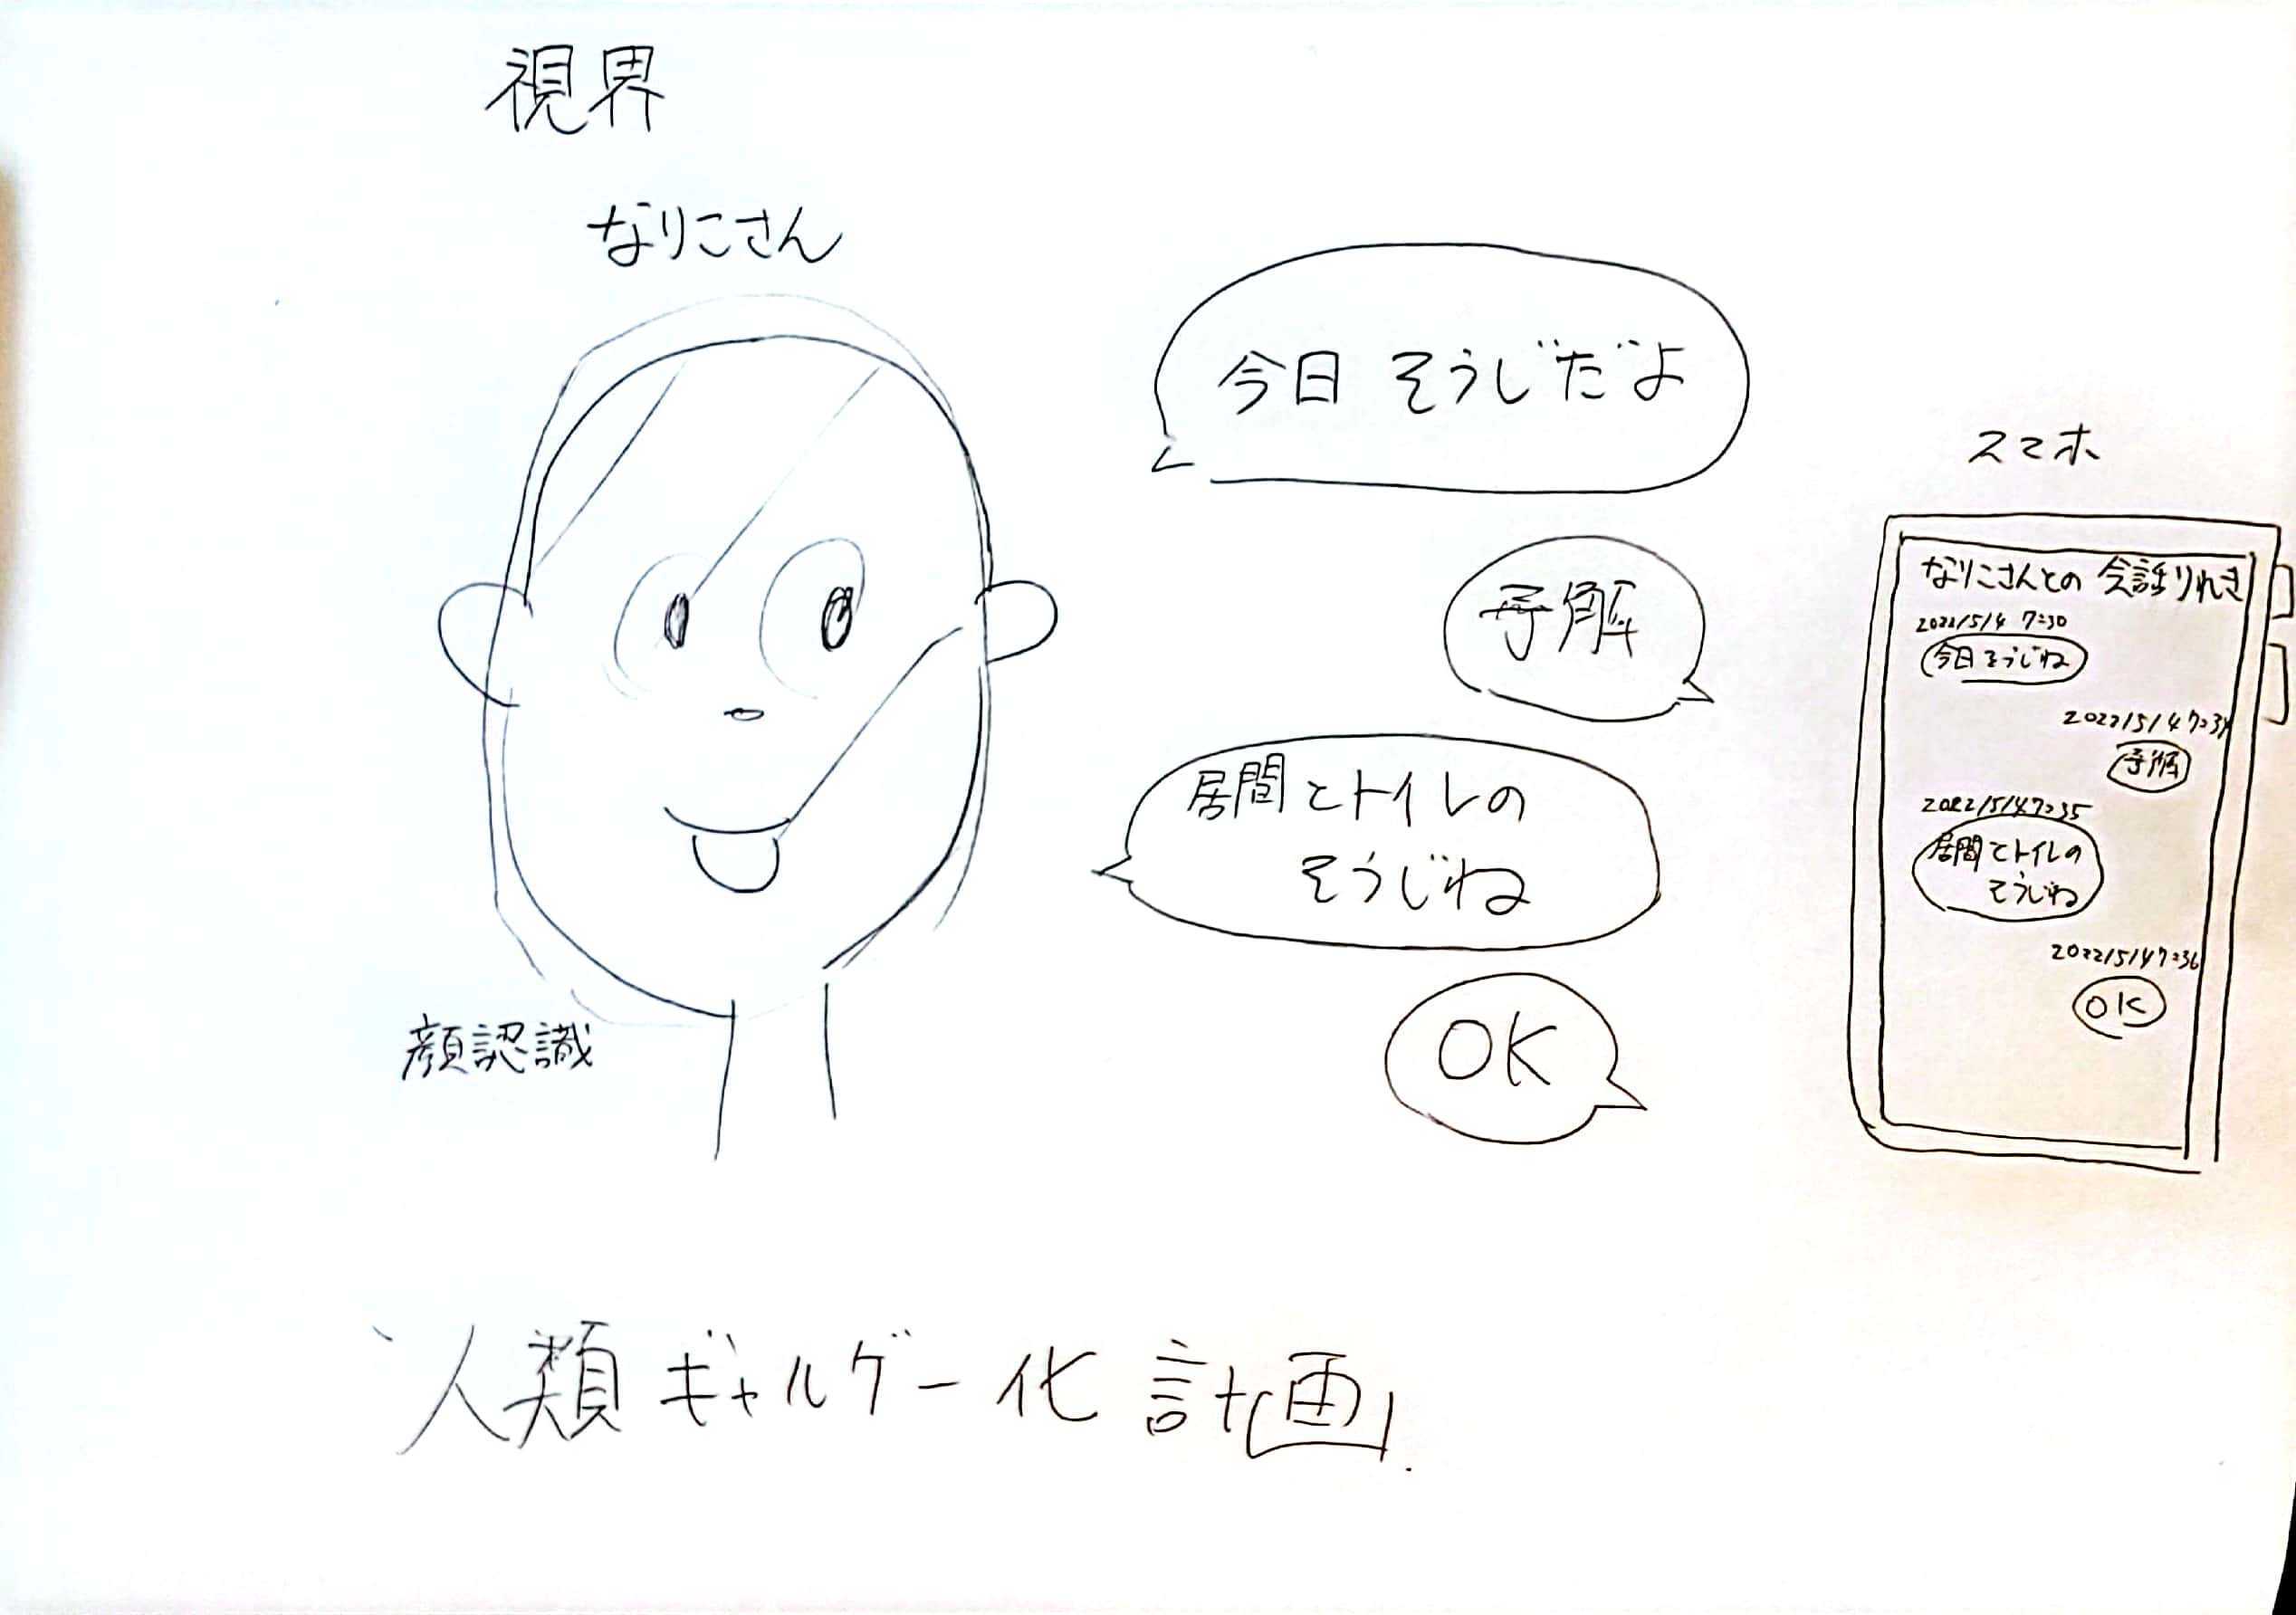 視界
なりこさん
今日 そうじだよ
了解
居間とトイレの
そうじね
OK
顔認識
スマホ
なりこさんとの会話りれき
2022/5/4 7:30
今日そうじね
2022/5/4 7:34
了解
2022/5/4 7:35
居間とトイレの
そうじね
2022/5/4 7:36
OK
人類ギャルゲー化計画